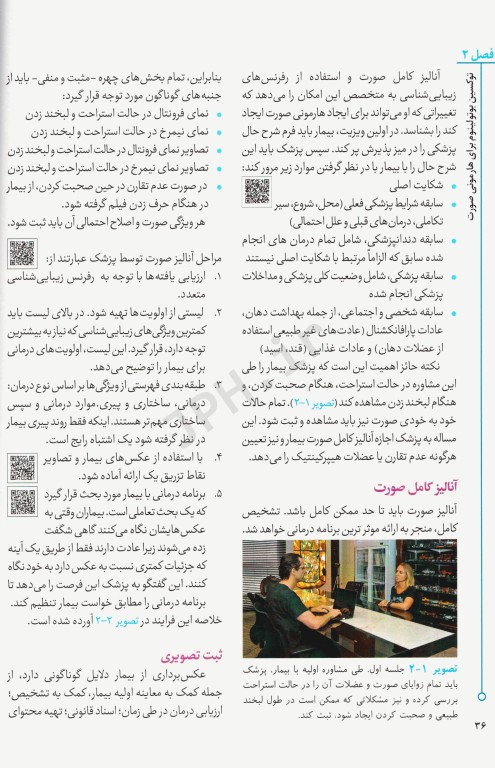 فصل ۲
توکسین بوتولینوم برای هارمونی صورت
آنالیز کامل صورت و استفاده از رفرنس‌های
زیبایی‌شناسی به متخصص این امکان را می‌دهد که
تغییراتی که او می‌تواند برای ایجاد هارمونی صورت ایجاد
کند را بشناسد. در اولین ویزیت، بیمار باید فرم شرح حال
پزشکی را در میز پذیرش پر کند. سپس پزشک باید این
شرح حال را با بیمار با در نظر گرفتن موارد زیر مرور کند:
• شکایت اصلی
• سابقه شرایط پزشکی فعلی (محل، شروع، سیر
تکاملی، درمان‌های قبلی و علل احتمالی)
• سابقه دندانپزشکی، شامل تمام درمان های انجام
شده سابق که الزاماً مرتبط با شکایت اصلی نیستند
• سابقه پزشکی، شامل وضعیت کلی پزشکی و مداخلات
پزشکی انجام شده
• سابقه شخصی و اجتماعی، از جمله بهداشت دهان،
عادات پارافانکشنال (عادت‌های غیر طبیعی استفاده
از عضلات دهان) و عادات غذایی (قند، اسید)
نکته حائز اهمیت این است که پزشک بیمار را طی
این مشاوره در حالت استراحت، هنگام صحبت کردن، و
هنگام لبخند زدن مشاهده کند (تصویر ۱-۲). تمام حالات
خود به خودی صورت نیز باید مشاهده و ثبت شود. این
مساله به پزشک اجازه آنالیز کامل صورت بیمار و نیز تعیین
هرگونه عدم تقارن یا عضلات هیپرکینتیک را می‌دهد.
آنالیز کامل صورت
آنالیز صورت باید تا حد ممکن کامل باشد. تشخیص
کامل، منجر به ارائه موثر ترین برنامه درمانی خواهد شد.
تصویر ۱-۲ جلسه اول. طی مشاوره اولیه با بیمار، پزشک
باید تمام زوایای صورت و عضلات آن را در حالت استراحت
بررسی کرده و نیز مشکلاتی که ممکن است در طول لبخند
طبیعی و صحبت کردن ایجاد شود، ثبت کند.
بنابراین، تمام بخش‌های چهره -مثبت و منفی- باید از
جنبه‌های گوناگون مورد توجه قرار گیرد:
• نمای فرونتال در حالت استراحت و لبخند زدن
• نمای نیمرخ در حالت استراحت و لبخند زدن
• تصاویر نمای فرونتال در حالت استراحت و لبخند زدن
• تصاویر نمای نیمرخ در حالت استراحت و لبخند زدن
• در صورت عدم تقارن در حین صحبت کردن، از بیمار
در هنگام حرف زدن فیلم گرفته شود.
هر ویژگی صورت و اصلاح احتمالی آن باید ثبت شود.
مراحل آنالیز صورت توسط پزشک عبارتند از:
۱. ارزیابی یافته‌ها با توجه به رفرنس زیبایی‌شناسی
متعدد.
۲. لیستی از اولویت‌ها تهیه شود. در بالای لیست باید
کمترین ویژگی‌های زیبایی‌شناسی که نیاز به بیشترین
توجه دارد، قرار گیرد. این لیست، اولویت‌های درمانی
برای بیمار را توضیح می‌دهد.
۳. طبقه‌بندی فهرستی از ویژگی‌ها بر اساس نوع درمان:
درمانی، ساختاری و پیری. موارد درمانی و سپس
ساختاری مهم‌تر هستند. اینکه فقط روند پیری بیمار
در نظر گرفته شود یک اشتباه رایج است.
۴. با استفاده از عکس‌های بیمار و تصاویر
نقاط تزریق یک ارائه آماده شود.
۵. برنامه درمانی با بیمار مورد بحث قرار گیرد
که یک بحث تعاملی است. بیماران وقتی به
عکس‌هایشان نگاه می‌کنند گاهی شگفت
زده می‌شوند زیرا عادت دارند فقط از طریق یک آینه
که جزئیات کمتری نسبت به عکس دارد به خود نگاه
کنند. این گفتگو به پزشک این فرصت را می‌دهد تا
برنامه درمانی را مطابق خواست بیمار تنظیم کند.
خلاصه این فرایند در تصویر ۲-۲ آورده شده است.
ثبت تصویری
عکس‌برداری از بیمار دلایل گوناگونی دارد، از
جمله کمک به معاینه اولیه بیمار، کمک به تشخیص؛
ارزیابی درمان در طی زمان؛ اسناد قانونی؛ تهیه محتوای
۳۶